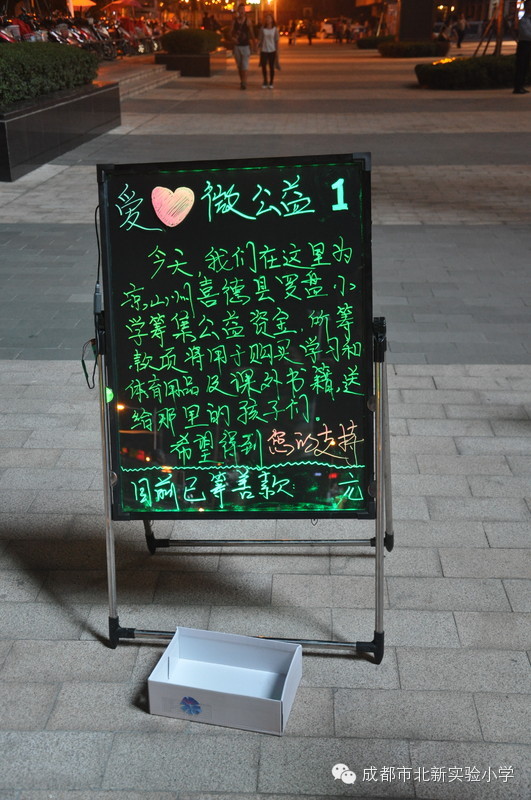 爱 微公益 1
今天，我们在这里为
凉山州喜德县罗盘小
学筹集公益资金，所筹
款项将用于购买学习和
体育用品及课外书籍，送
给那里的孩子们
希望得到 您的支持
目前已筹善款 元
成都市北新实验小学